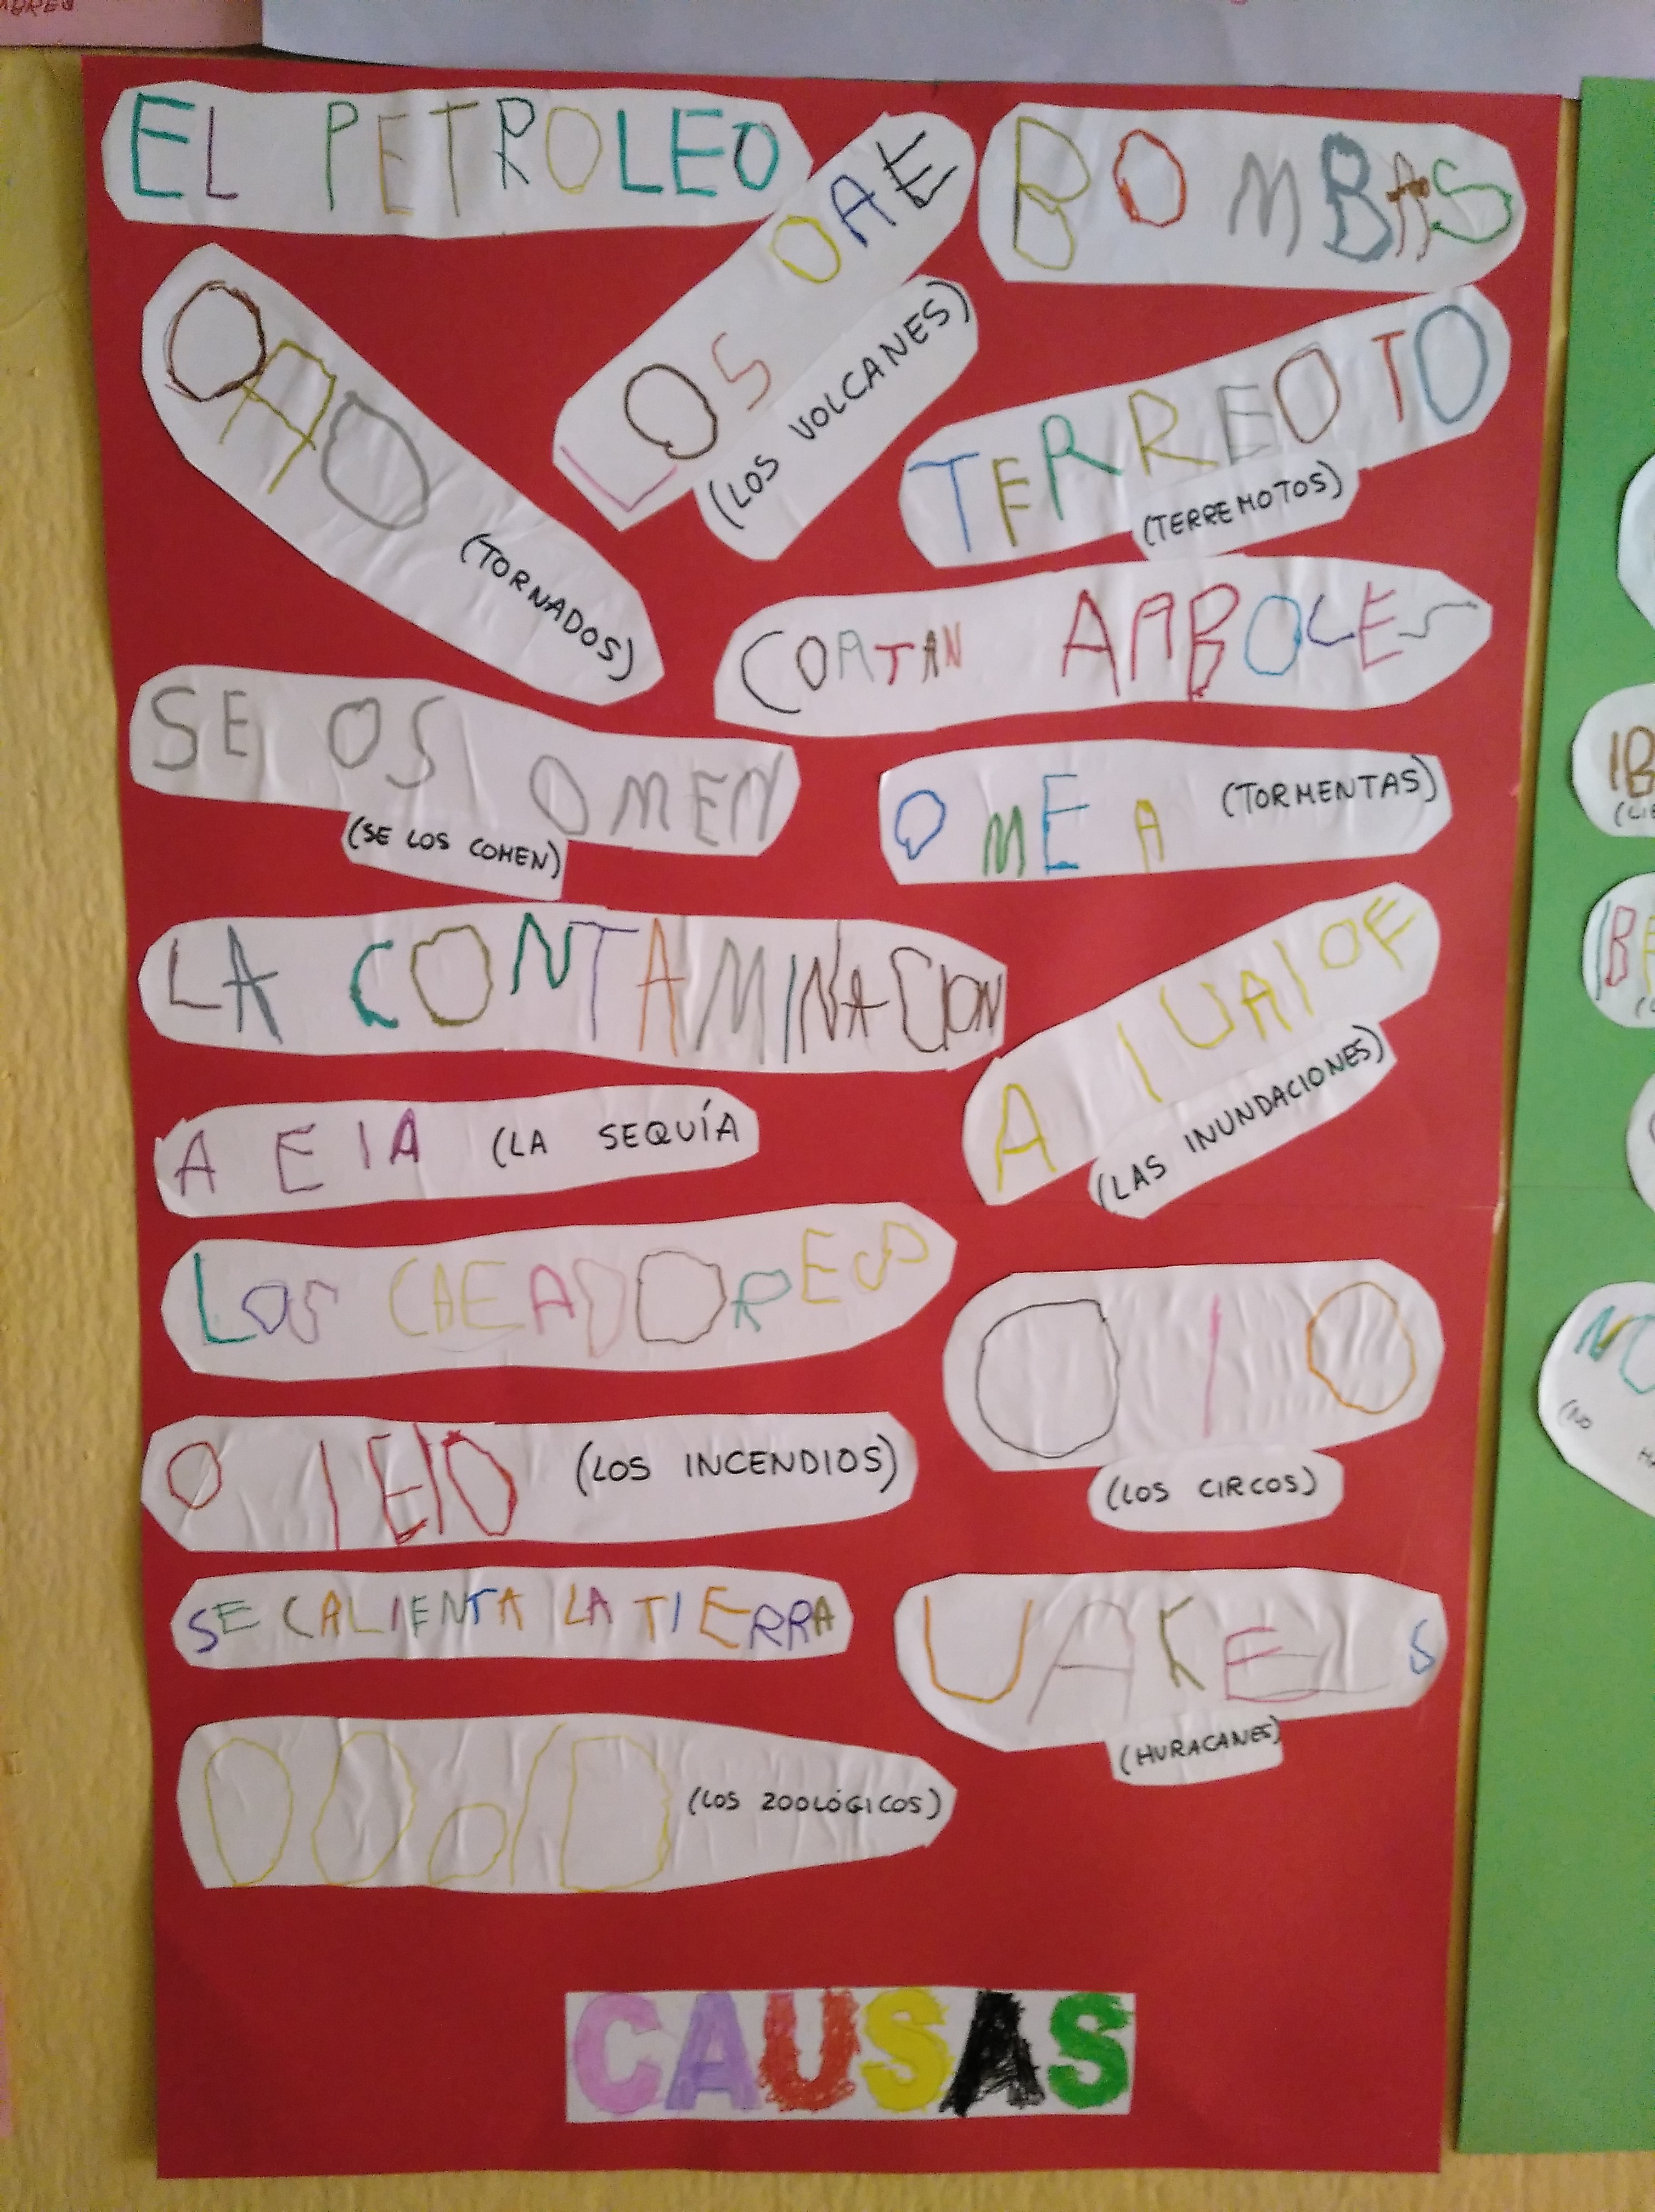 EL PETROLEO
LOS OAE
(LOS VOLCANES)
BOMBAS
OAO
(TORNADOS)
TERREOTO
(TERREMOTOS)
CORTAN ARBOLES
SE OS OMEN
(SE LOS COMEN)
OMEA (TORMENTAS)
LA CONTAMINACION
A IUAIOE
(LAS INUNDACIONES)
A EIA (LA SEQUÍA
LOS CAEADORES
OIO
(LOS CIRCOS)
O IEIO (LOS INCENDIOS)
SE CALIENTA LA TIERRA
UAKE S
(HURACANES)
(LOS ZOOLÓGICOS)
CAUSAS
NO
(NO